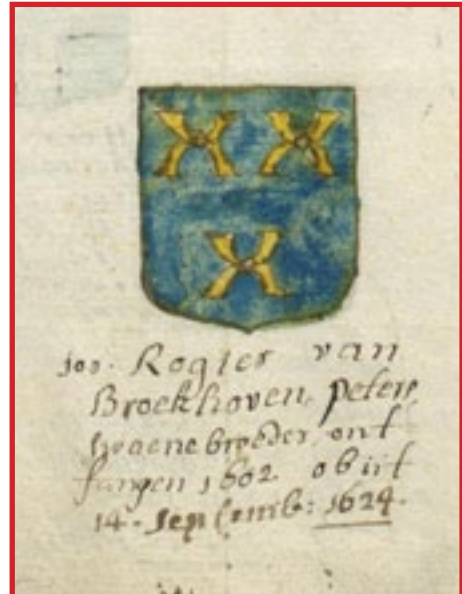 jor. Rogier van
Broekhoven, peters
broeder, ont
fangen 1602 obiit
14. Septemb: 1624.